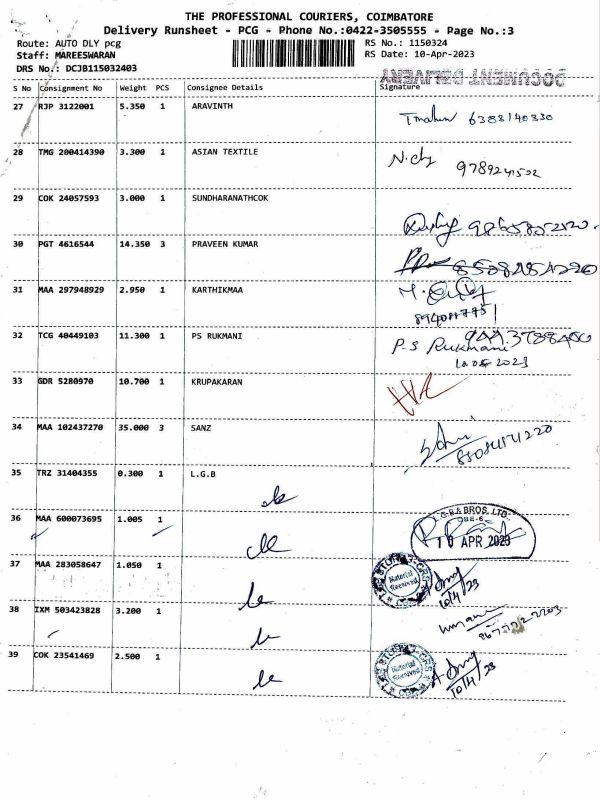 THE PROFESSIONAL COURIERS, COIMBATORE
Delivery Runsheet - PCG - Phone No.:0422-3505555 - Page No.:3
Route: AUTO DLY pcg RS No.: 1150324
Staff: MAREESWARAN RS Date: 10-Apr-2023
DRS No.: DCJB115032403
DOCUMENT DELIVERY
S No Consignment No Weight PCS Consignee Details Signature
27 RJP 3122001 5.350 1 ARAVINTH
6382140330
28 TMG 200414390 3.300 1 ASIAN TEXTILE
29 COK 24057593 3.000 1 SUNDHARANATHCOK
30 PGT 4616544 14.350 3 PRAVEEN KUMAR
31 MAA 297948929 2.950 1 KARTHIKMAA
32 TCG 40449103 11.300 1 PS RUKMANI
P-S Rukmani
33 GDR 5280970 10.700 1 KRUPAKARAN
34 MAA 102437270 35.000 3 SANZ
35 TRZ 31404355 0.300 1 L.G.B
36 MAA 600073695 1.005 1
G.B BROS. LTD
10 APR 2023
37 MAA 283058647 1.050 1
Material Received
10/4/23
38 IXM 503423828 3.200 1
39 COK 23541469 2.500 1
Material Received
10/4/23